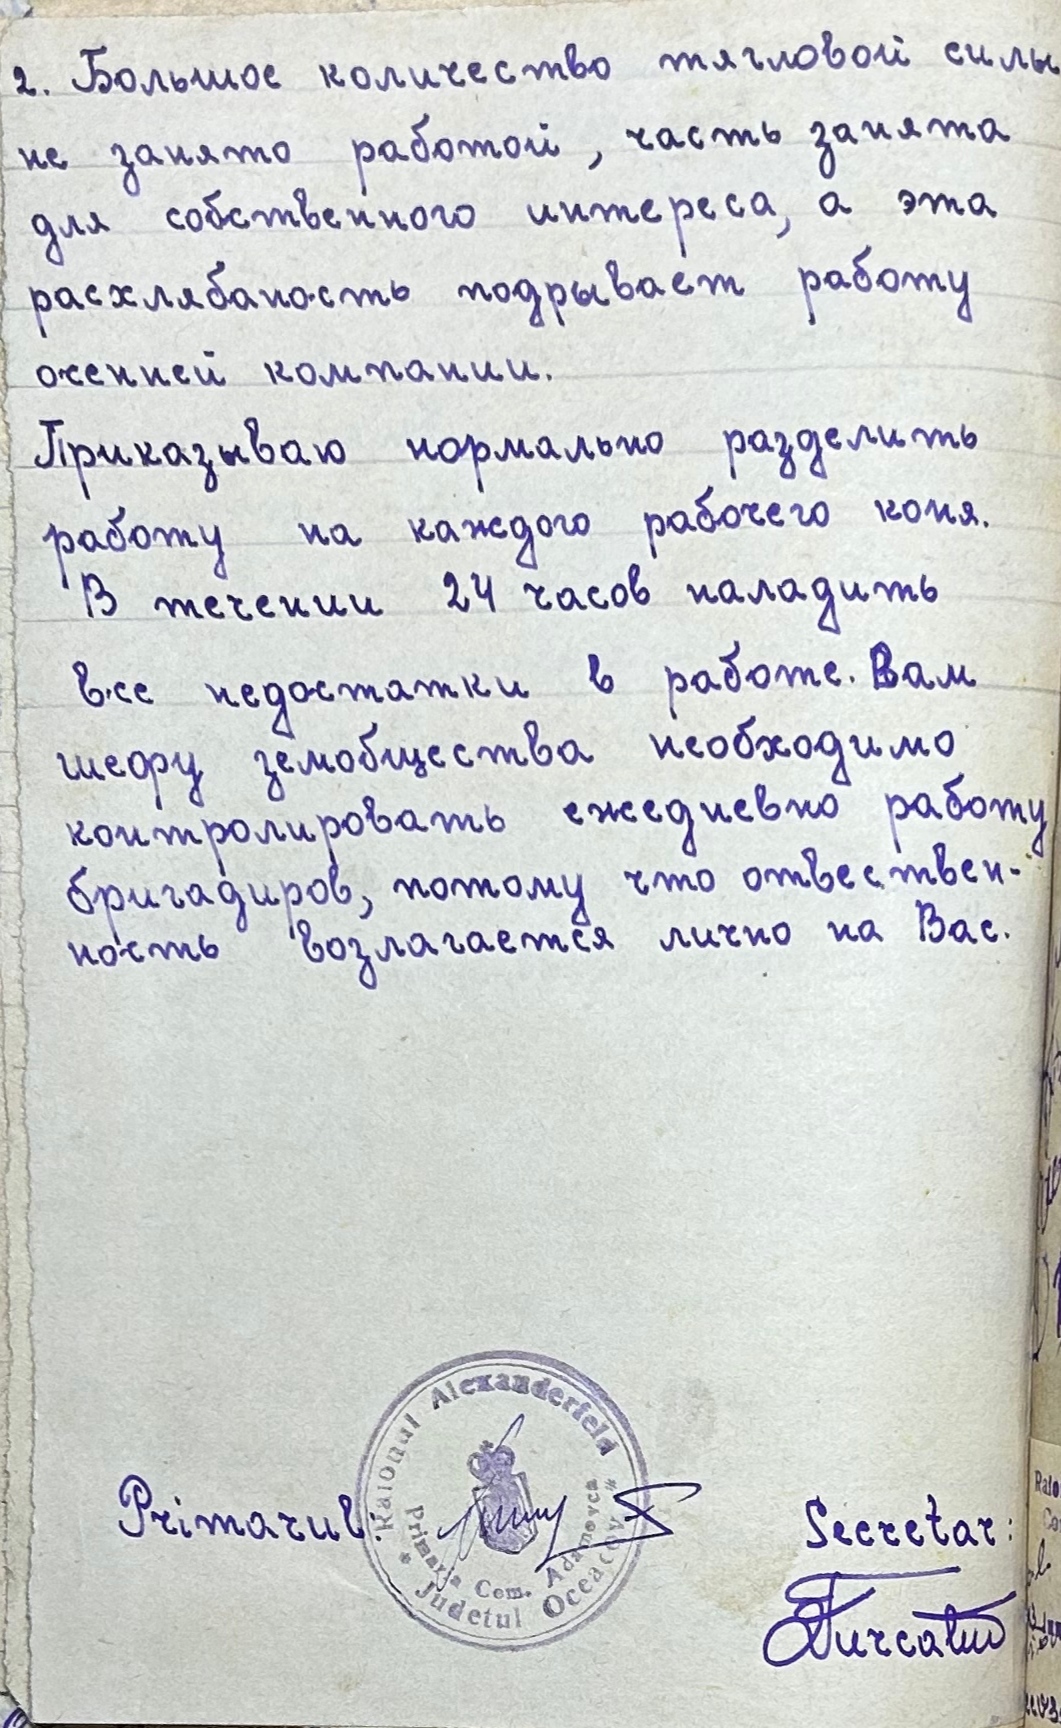 2. Большое количество тягловой силы
не занято работой, часть занята
для собственного интереса, а эта
расхлябаность подрывает работу
осенней компании.
Приказываю нормально разделить
работу на каждого рабочего коня.
В течении 24 часов наладить
все недостатки в работе. Вам
шефу земобщества необходимо
контролировать ежедневно работу
бригадиров, потому что отвествен-
ность возлагается лично на Вас.
Raionul Alexanderfeld
Primaria Com. Adamovca
* Judetul Oceacov *
Primarul:
Secretar: